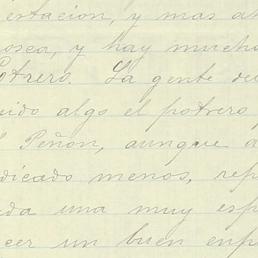 estacion, y mas a
osca, y hay mucho
Potrero. La gente de
uido algo el potrero
l Peñon, aunque a
dicado menos, rep
da una muy esp
cer un buen enp